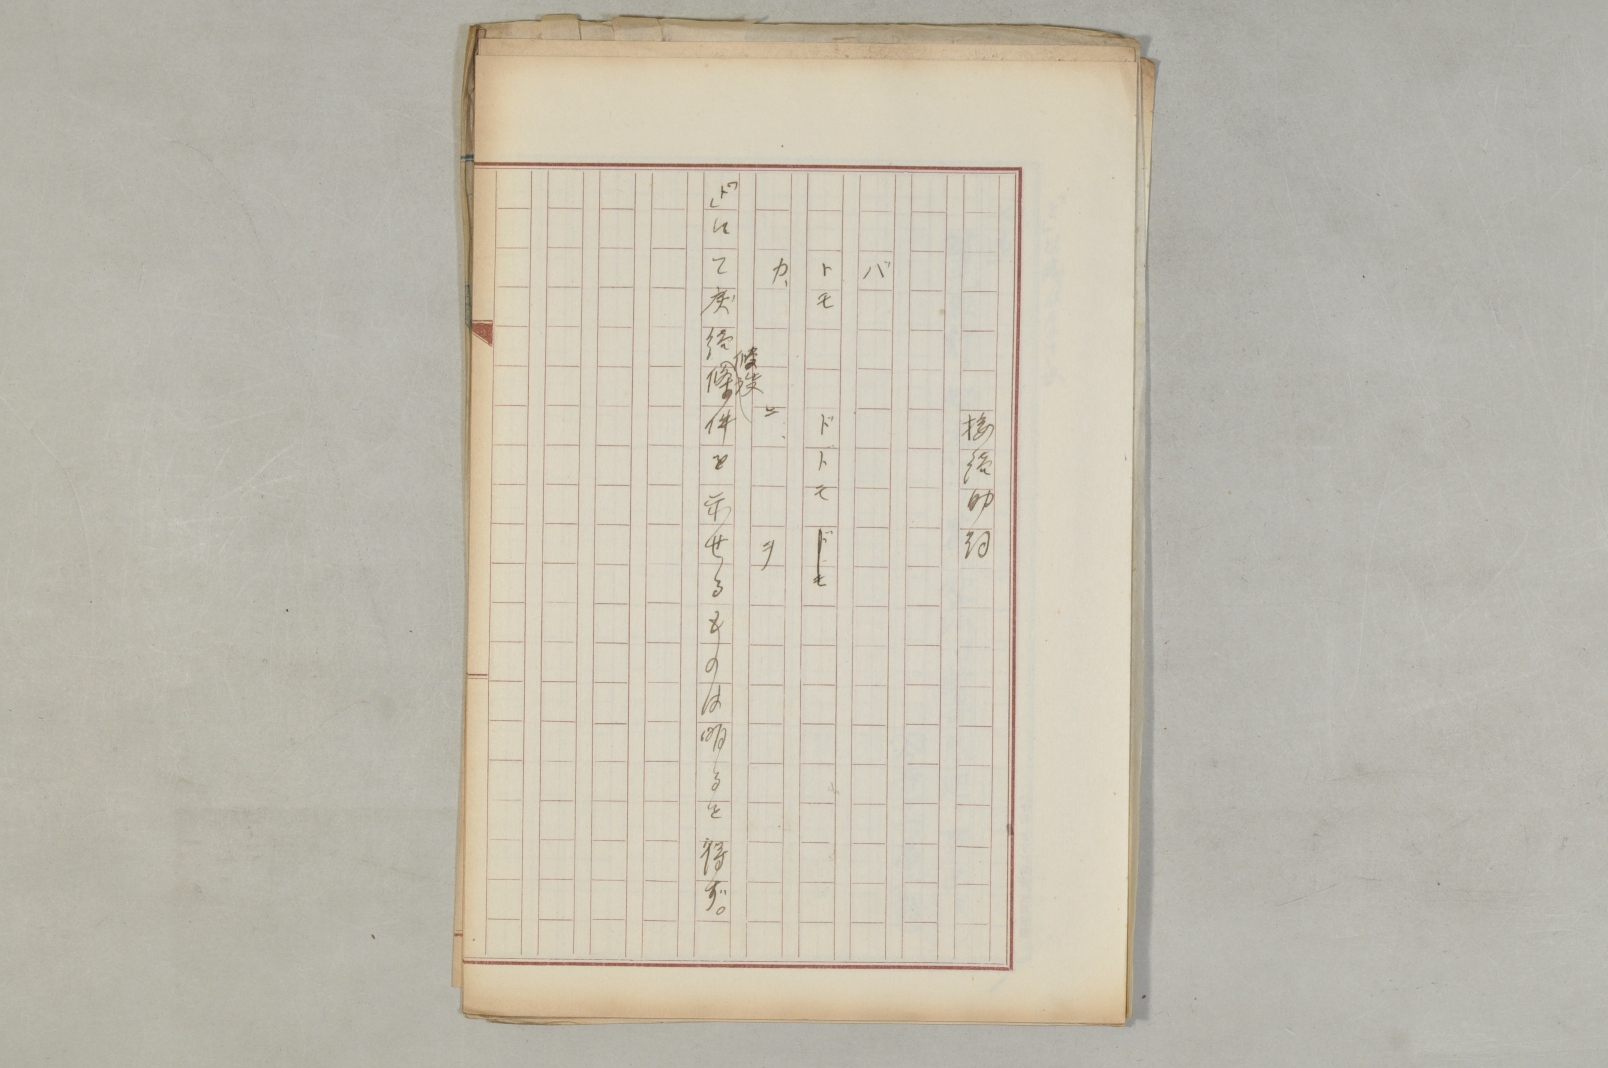 接続助詞
バ
トモ ド トモ ドモ
カ、 ニ、 ヲ
假設
「ド」にて 條件を示せるものは るを得ず。